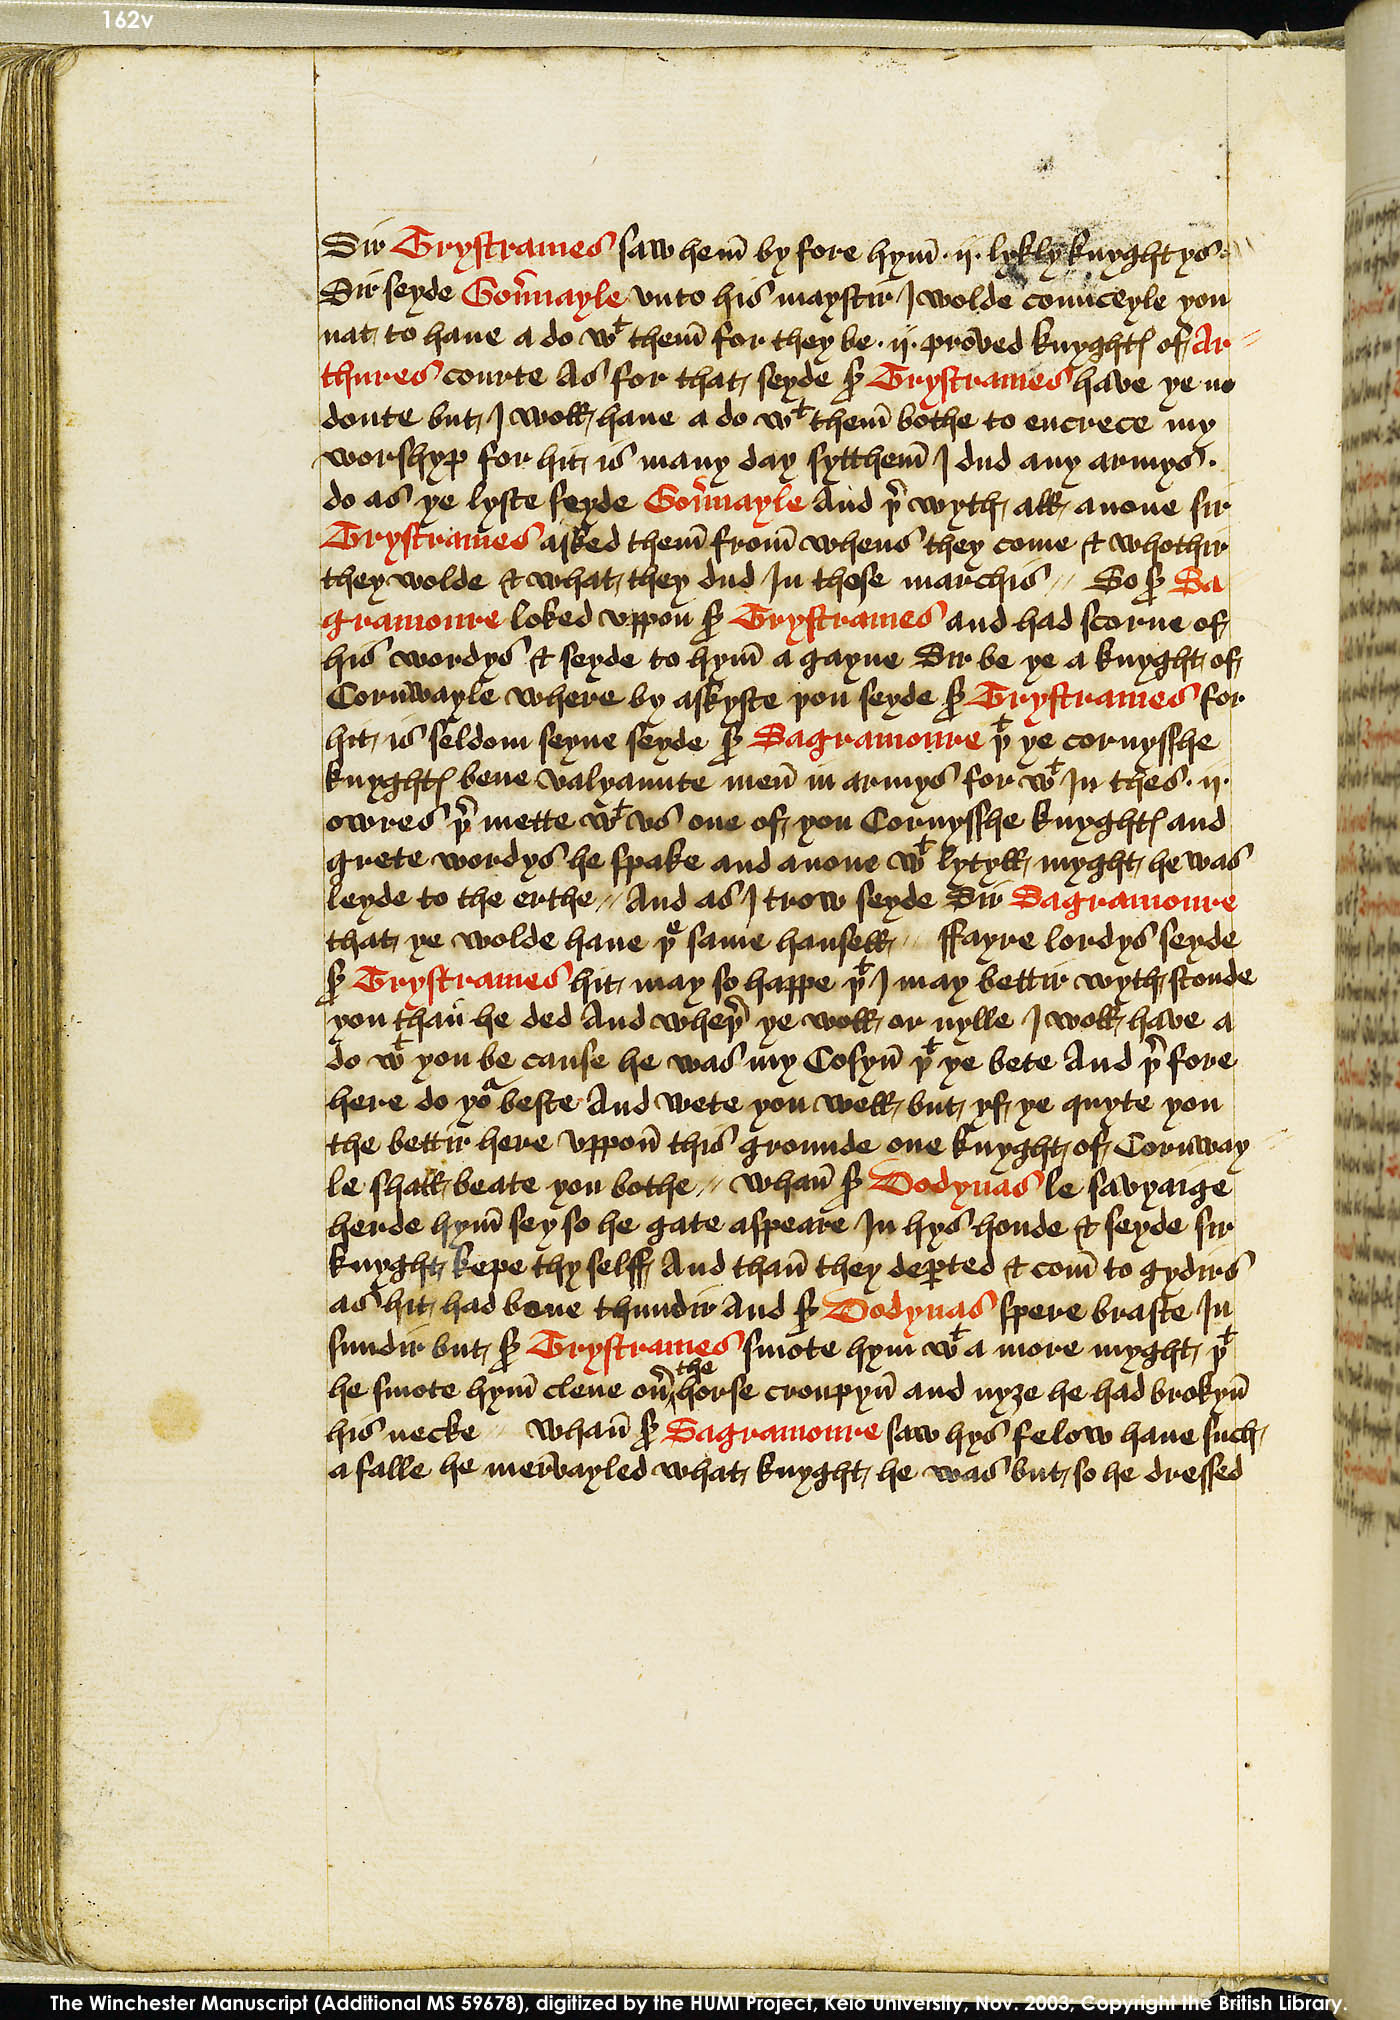 162v
Sir Trystrames saw hem̄ by fore hym̄ · ij · lykly knyghtys ·
Sir seyde Gou͛nayle vnto his maystir I wolde counceyle you
nat to haue a do wᵗ them̄ for they be · ij · proved knyghtꝭ of Ar
thures courte As for that seyde sꝭ Trystrames have ye no
doute but I woll haue a do wᵗ them̄ bothe to encrece my
worshyp for hit is many day sytthem̄ I dud any armys ·
do as ye lyste seyde Gou͛nayle And þ͛ wyth all anone sir
Trystrames asked them̄ from̄ whens they come & whothir
they wolde & what they dud In these marchis // So sꝭ Sa
gramoure loked vppon̄ sꝭ Trystrames and had scorne of
his wordys & seyde to hym̄ a gayne Sir be ye a knyght of
Corn̄wayle where by askyste you seyde sꝭ Trystrames for
hit is seldom seyne seyde sꝭ Sagramoure þᵗ ye cornysshe
knyghtꝭ bene valyaunte men̄ in armys for wᵗ In thes · ij ·
owres þ͛ mette wᵗ vs one of you Cornysshe knyghtꝭ and
grete wordys he spake and anone wᵗ lytyll myght he was
leyde to the erthe // And as I trow seyde Sir Sagramoure
that ye wolde haue þᵉ same hansell // ffayre lordys seyde
sꝭ Trystrames hit may so happe þᵗ I may bettir wyth stonde
you than̄ he ded And wheþ͛ ye woll or nylle I woll have a
do wᵗ you be cause he was my Cosyn̄ þᵗ ye bete And þ͛ fore
here do yoᵃ beste And wete you well but yf ye quyte you
the bettir here vppon̄ this grounde one knyght of Corn̄way
le shall beate you bothe // whan̄ sꝭ Dodynas le savyaige
herde hym̄ sey so he gate aspeare In hys honde & seyde sir
knyght kepe thy selff And than̄ they deꝑted & com̄ to gydirs
as hit had bene thundir And sꝭ Dodynas spere braste In
sundir but sꝭ Trystrames smote hym wᵗ a more myght þᵗ
he smote hym̄ clene ou͛ the horse croupyn̄ and nyze he had brokyn̄
his necke // whan̄ sꝭ Sagramoure saw hys felow haue such
a falle he mer̄vayled what knyght he was but so he dressed
The Winchester Manuscript (Additional MS 59678), digitized by the HUMI Project, Keio University, Nov. 2003; Copyright the British Library.